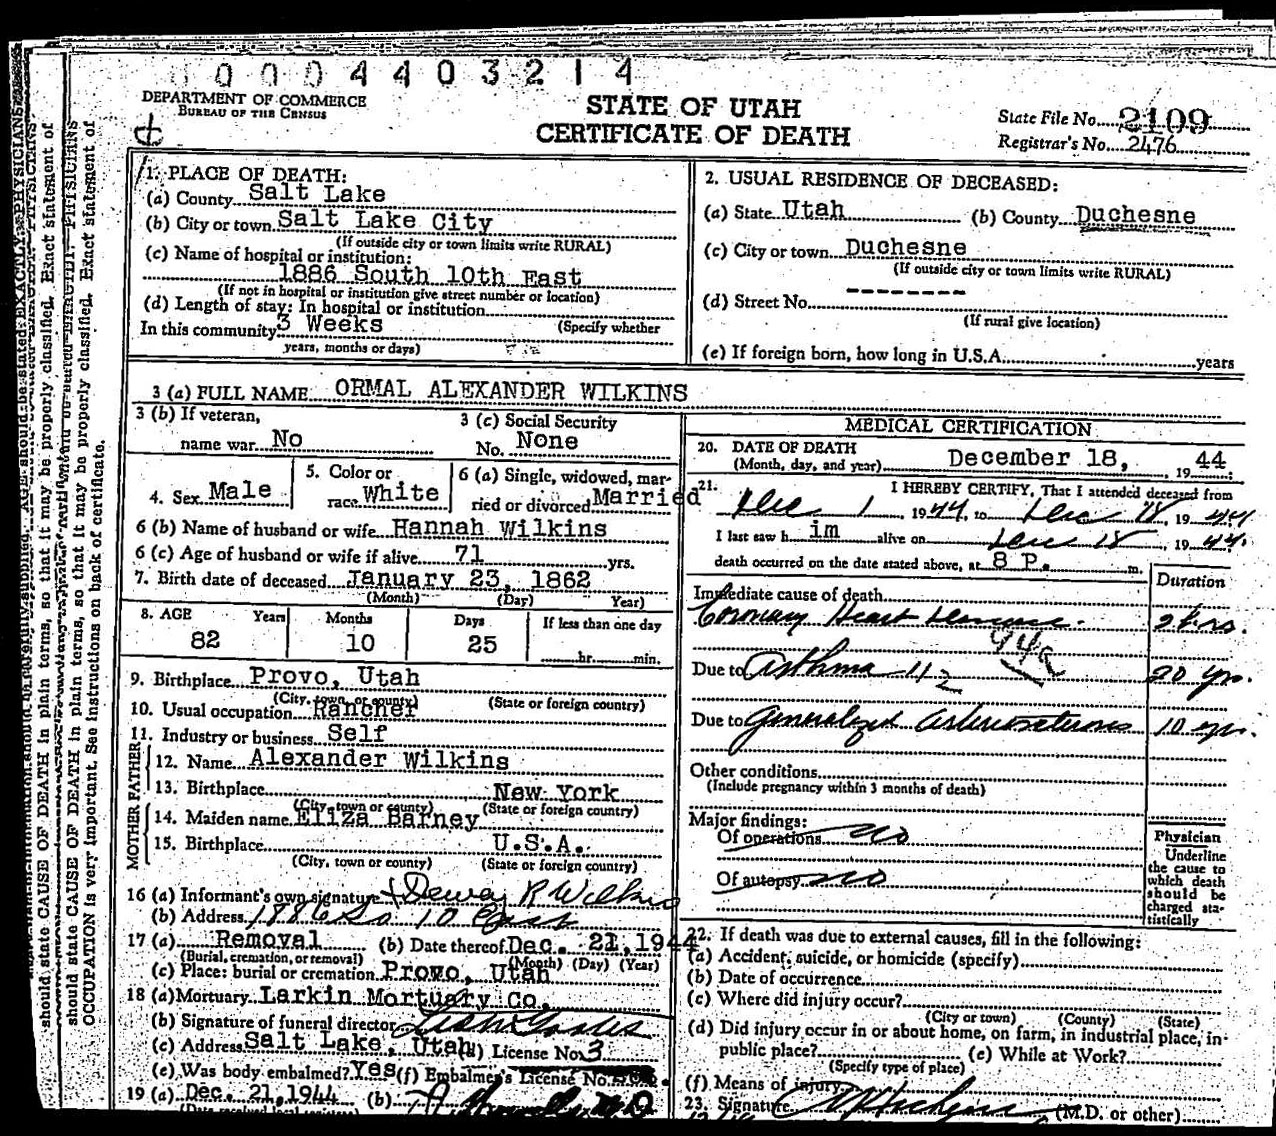 0 0 0 0 4 4 0 3 2 1 4
DEPARTMENT OF COMMERCE
BUREAU OF THE CENSUS
STATE OF UTAH
CERTIFICATE OF DEATH
State File No. 2109
Registrar's No. 2476
1. PLACE OF DEATH:
(a) County Salt Lake
(b) City or town Salt Lake City
(If outside city or town limits write RURAL)
(c) Name of hospital or institution:
1886 South 10th East
(If not in hospital or institution give street number or location)
(d) Length of stay: In hospital or institution
In this community 3 Weeks (Specify whether
years, months or days)
2. USUAL RESIDENCE OF DECEASED:
(a) State Utah (b) County Duchesne
(c) City or town Duchesne
(If outside city or town limits write RURAL)
(d) Street No. --------
(If rural give location)
(e) If foreign born, how long in U.S.A. years
3 (a) FULL NAME ORMAL ALEXANDER WILKINS
3 (b) If veteran, name war No
3 (c) Social Security No. None
4. Sex Male
5. Color or race White
6 (a) Single, widowed, married or divorced Married
6 (b) Name of husband or wife Hannah Wilkins
6 (c) Age of husband or wife if alive 71 yrs.
7. Birth date of deceased January 23, 1862
(Month) (Day) Year)
8. AGE Years Months Days If less than one day
82 10 25 hr. min.
9. Birthplace Provo, Utah
(City, town, or county) (State or foreign country)
10. Usual occupation Rancher
11. Industry or business Self
FATHER
12. Name Alexander Wilkins
13. Birthplace New York
(City, town or county) (State or foreign country)
MOTHER
14. Maiden name Eliza Barney
15. Birthplace U.S.A.
(City, town or county) (State or foreign country)
16 (a) Informant's own signature Dewey R Wilkins
(b) Address 1886 So 10 East
17 (a) Removal (b) Date thereof Dec. 21, 1944
(Burial, cremation, or removal) (Month) (Day) (Year)
(c) Place: burial or cremation Provo, Utah
18 (a) Mortuary Larkin Mortuary Co.
(b) Signature of funeral director
(c) Address Salt Lake, Utah (d) License No. 3
(e) Was body embalmed? Yes (f) Embalmer's License No.
19 (a) Dec. 21, 1944 (b)
MEDICAL CERTIFICATION
20. DATE OF DEATH
(Month, day, and year) December 18, 19 44
21. I HEREBY CERTIFY, That I attended deceased from
Dec 1, 1944, to Dec 18, 1944
I last saw h im alive on Dec 18, 1944.
death occurred on the date stated above, at 8 P. m.
Immediate cause of death Duration
Coronary Heart Disease. 2 yrs.
94a
Due to Asthma 112 20 yrs.
Due to Generalized Arteriosclerosis 10 yrs.
Other conditions
(Include pregnancy within 3 months of death)
Major findings:
Of operations no
Of autopsy no
Physician
Underline the cause to which death should be charged statistically
22. If death was due to external causes, fill in the following:
(a) Accident, suicide, or homicide (specify)
(b) Date of occurrence
(c) Where did injury occur?
(City or town) (County) (State)
(d) Did injury occur in or about home, on farm, in industrial place, in public place? (e) While at Work?
(Specify type of place)
(f) Means of injury
23. Signature (M.D. or other)
should state CAUSE OF DEATH in plain terms, so that it may be properly classified. Exact statement of
OCCUPATION is very important. See instructions on back of certificate.